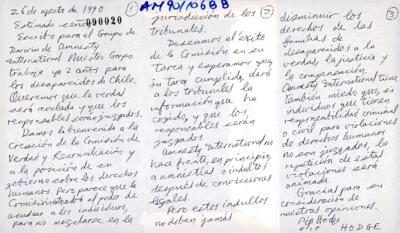 26 de agosto de 1990
①
Estimado señor,
000020
Escribo para el Grupo de
Darwin de Amnesty
International. Nuestro Grupo
trabaja ya 2 años para
los desaparecidos de Chile.
Queremos que la verdad
será revelada y que los
responsables serán juzgados.
Damos la bienvenida a la
creación de la Comisión de
Verdad y Reconciliación y
a la posición de su
gobierno sobre los derechos
humanos. Pero parece que la
Comisión no tendrá el poder de
acusar a los individuos,
para no mezclarse en la
AM90/0688
②
jurisdicción de los
tribunales.
Deseamos el éxito
de la Comisión en su
tarea y esperamos que,
su tarea cumplida, dará
a los tribunales la
información que ha
cogido, y que los
responsables serán
juzgados.
Amnesty International no
hace frente, en principio,
a amnistias o indultos
después de convicciones
legales.
Pero estos indultos
no deben jamás
③
disminuir los
derechos de las
familias de
desaparecidos a la
verdad, la justicia y
la compensación.
Amnesty International tiene
también miedo que, si
individuos que tienen
responsabilidad criminal
o civil para violaciones
de derechos humanos
no son juzgados, la
repetición de estas
violaciones será
animada.
Gracias para su
consideración de
nuestras opiniones.
Pip Hodge
Pip HODGE